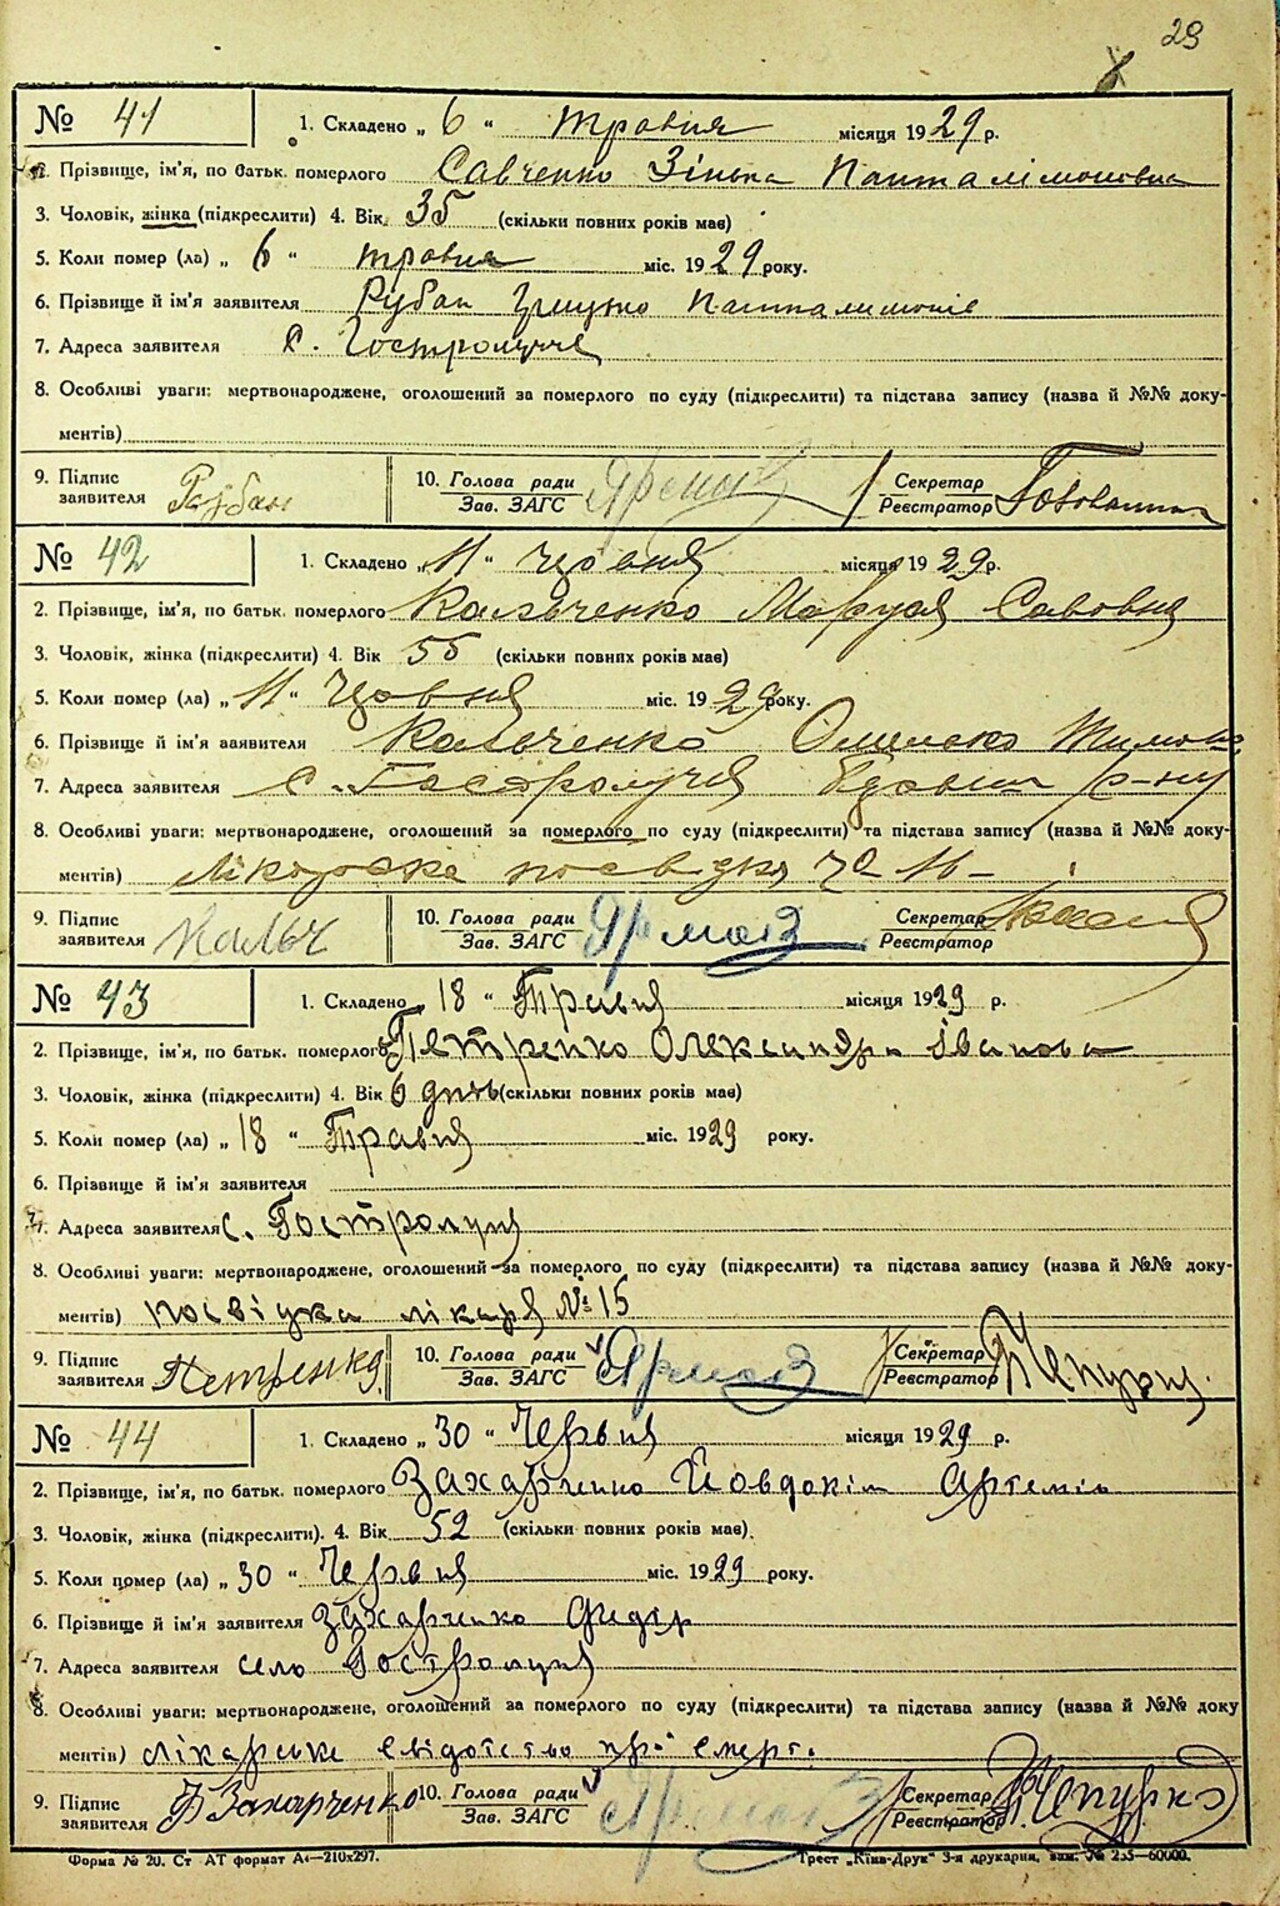 29
№ 41 1. Складено „ 6 “ травня місяця 1929 р.
2. Прізвище, ім'я, по батьк. померлого Савченко Зінька Панталімоновна
3. Чоловік, жінка (підкреслити) 4. Вік 35 (скільки повних років має)
5. Коли помер (ла) „ 6 “ травня міс. 1929 року.
6. Прізвище й ім'я заявителя Рубан Грицько Панталимонів
7. Адреса заявителя с. Гостролуччя
8. Особливі уваги: мертвонароджене, оголошений за померлого по суду (підкреслити) та підстава запису (назва й №№ доку-
ментів)
9. Підпис заявителя Рубан 10. Голова ради Зав. ЗАГС Ярмоз Секретар Реєстратор
№ 42 1. Складено „ 11 “ місяця 1929 р.
2. Прізвище, ім'я, по батьк. померлого Кальченко Маруся Савовна
3. Чоловік, жінка (підкреслити) 4. Вік 55 (скільки повних років має)
5. Коли помер (ла) „ 11 “ міс. 1929 року.
6. Прізвище й ім'я заявителя Кальченко
7. Адреса заявителя с. Гостролучя р-ну
8. Особливі уваги: мертвонароджене, оголошений за померлого по суду (підкреслити) та підстава запису (назва й №№ доку-
ментів) Лікарська посвідка
9. Підпис заявителя Кальч 10. Голова ради Зав. ЗАГС Ярмоз Секретар Реєстратор
№ 43 1. Складено „ 18 “ Травня місяця 1929 р.
2. Прізвище, ім'я, по батьк. померлого Петренко Олександра Іванова
3. Чоловік, жінка (підкреслити) 4. Вік 6 днів (скільки повних років має)
5. Коли помер (ла) „ 18 “ Травня міс. 1929 року.
6. Прізвище й ім'я заявителя
7. Адреса заявителя с. Гостролуця
8. Особливі уваги: мертвонароджене, оголошений за померлого по суду (підкреслити) та підстава запису (назва й №№ доку-
ментів) посвідка лікаря № 15
9. Підпис заявителя Петренко 10. Голова ради Зав. ЗАГС Ярмоз Секретар Реєстратор
№ 44 1. Складено „ 30 “ Червня місяця 1929 р.
2. Прізвище, ім'я, по батьк. померлого Захарченко Йовдокім Артемів
3. Чоловік, жінка (підкреслити). 4. Вік 52 (скільки повних років має).
5. Коли помер (ла) „ 30 “ Червня міс. 1929 року.
6. Прізвище й ім'я заявителя Захарченко Федір
7. Адреса заявителя село Гостролуця
8. Особливі уваги: мертвонароджене, оголошений за померлого по суду (підкреслити) та підстава запису (назва й №№ доку
ментів) Лікарське свідотство про смерт.
9. Підпис заявителя Ф Захарченко 10. Голова ради Зав. ЗАГС Ярмоз Секретар Реєстратор Чепурко
Форма № 20. Ст АТ формат А4—210х297. Трест „Київ-Друк" 3-я друкарня, зам. № 235—60000.